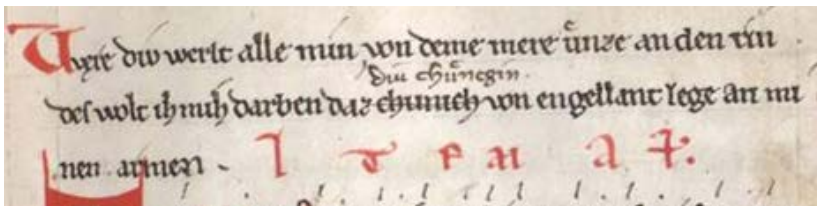 Uvere diu werlt alle min von deme mere uͦnze an den rin
diu chuͦnegin.
des wolt ih mih darben daz chunich von engellant lege an mi
nen armen. I T E M A